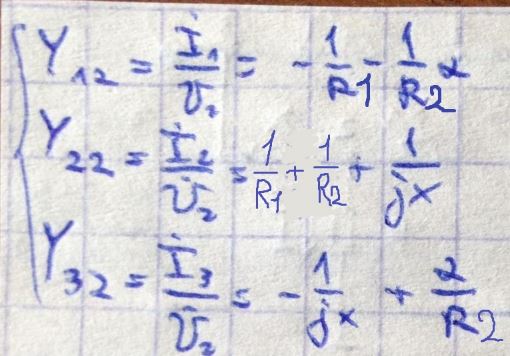 Y₁₂ = İ₁/U̇₂ = - 1/R1 - 1/R₂ α
Y₂₂ = İ₂/U̇₂ = 1/R₁ + 1/R₂ + 1/jx
Y₃₂ = İ₃/U̇₂ = - 1/jx + α/R₂